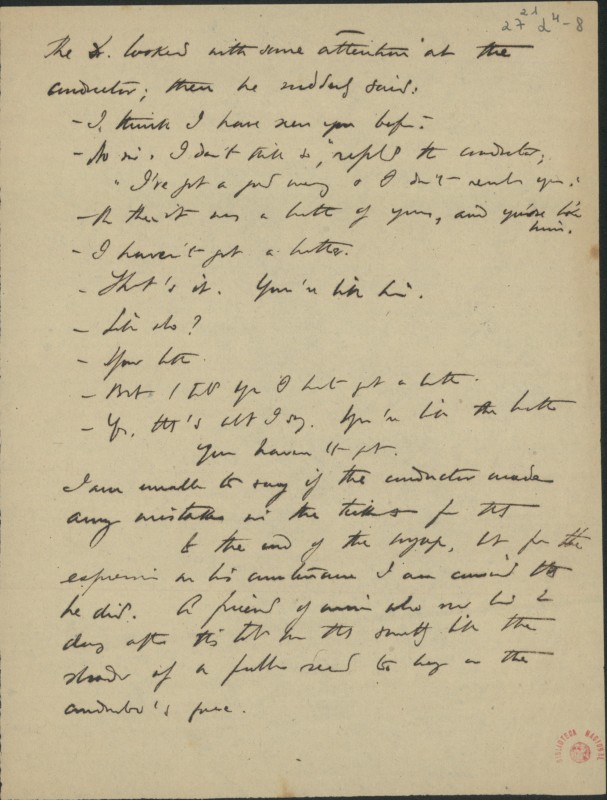 27 21 d4-8
The Dr. looked with some attention at the
conductor; then he suddenly said:
- I think I have seen you before.
- No sir. I don't think so", replied the conductor;
"I've got a good memory & I don't remember you."
- then it was a brother of yours, and you're like
him.
- I haven't got a brother.
- That's it. You're like him.
- Like who?
- Your brother
- But I tell you I haven't got a brother.
- Yes, that's what I say. You're like the brother
you haven't got.
I am unable to say if the conductor made
any mistakes in the tickets from that
to the end of the voyage, but from the
expression on his countenance I am convinced that
he did. A friend of mine who saw him 2
days after this told me that something like the
shadow of a seemed to be on the
conductor's face.
BIBLIOTECA NACIONAL